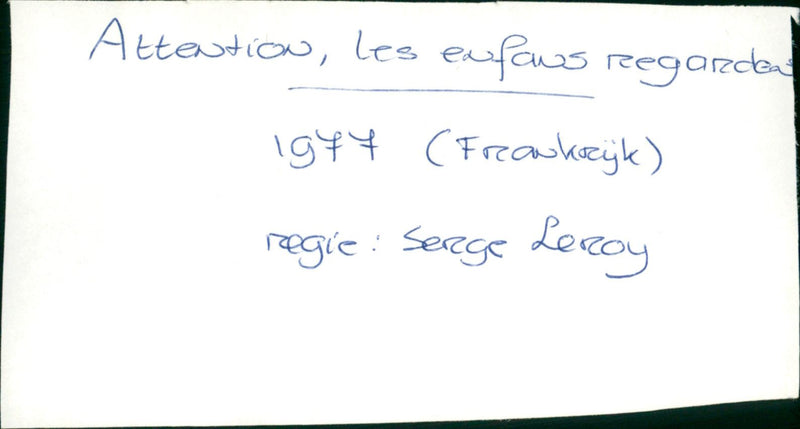 Attention, les enfans regarden
1977 (Frankrijk)
regie: Serge Leroy